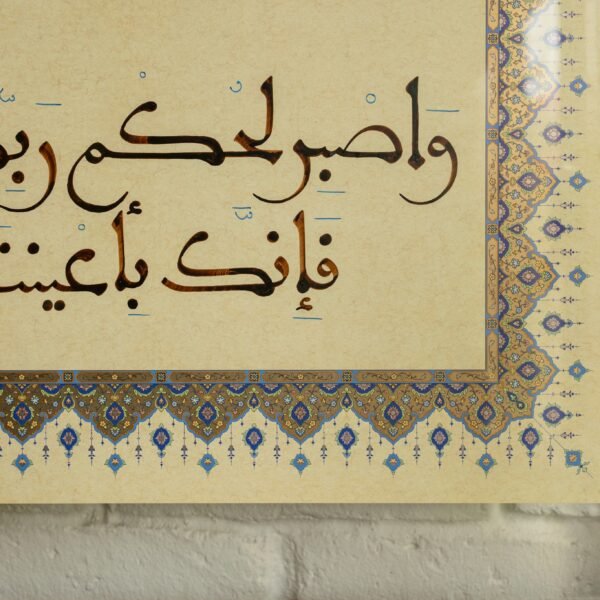 وَاصْبِرْ لِحُكْمِ رَبِّـ
فَإِنَّكَ بِأَعْيُنِنَـ